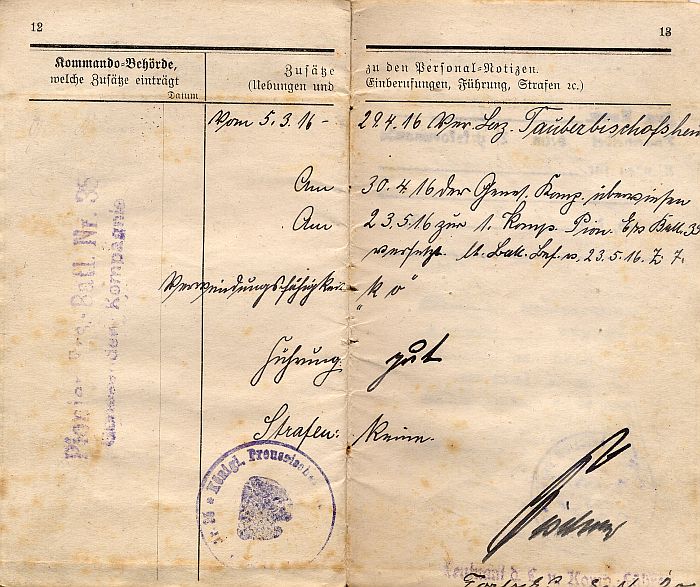 12
13
Kommando-Behörde,
welche Zusätze einträgt
Datum
Zusätze zu den Personal-Notizen.
(Uebungen und Einberufungen, Führung, Strafen ꝛc.)
Vom 5.3.16 - 29.4.16 Ver. Laz. Tauberbischofsheim
Am 30.4.16 der Genes. Komp. überwiesen
Am 23.5.16 zur 1. Komp. Pion. Ers Batl. 35
versetzt. lt. Batl. Bef. v. 23.5.16. Z. 7.
Verwendungsfähigkeit: "ko"
Führung: gut
Strafen: keine.
Pionier Ers.-Batl. Nr. 35
Genesenden Kompagnie
Königl. Preussische
Leutnant d. R. u. Komp.-Führer